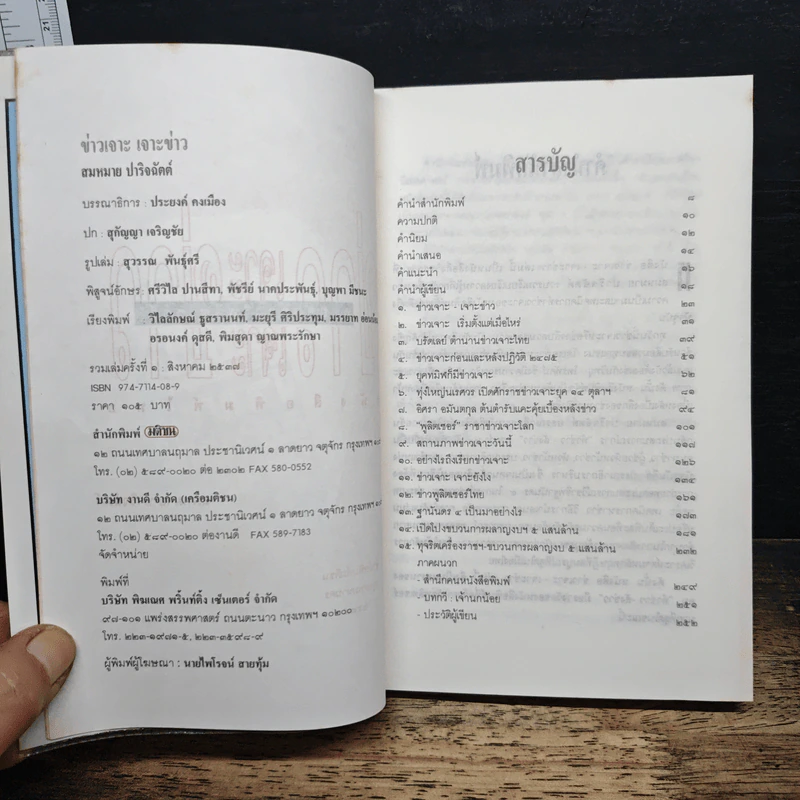 ข่าวเจาะ เจาะข่าว
สมหมาย ปาริจฉัตต์
บรรณาธิการ : ประยงค์ คงเมือง
ปก : สุกัญญา เจริญชัย
รูปเล่ม : สุวรรณ พันธุ์ศรี
พิสูจน์อักษร : ศรีวิไล ปานสีทา, พัชรีย์ นาคประพันธุ์, บุญพา มีชนะ
เรียงพิมพ์ : วิไลลักษณ์ ธูสรานนท์, มะยุรี ศิริประทุม, มรรยาท
อรอนงค์ ดุสดี, พิมสุดา ญาณพระรักษา
รวมเล่มครั้งที่ ๑ : สิงหาคม ๒๕๓๗
ISBN 974-7114-08-9
ราคา ๑๐๕ บาท
สำนักพิมพ์ มติชน
๑๒ ถนนเทศบาลนฤมาล ประชานิเวศน์ ๑ ลาดยาว จตุจักร กรุงเทพฯ
โทร. (๐๒) ๕๘๙-๐๐๒๐ ต่อ ๒๓๐๒ FAX 580-0552
บริษัท งานดี จำกัด (เครือมติชน)
๑๒ ถนนเทศบาลนฤมาล ประชานิเวศน์ ๑ ลาดยาว จตุจักร กรุงเทพฯ
โทร. (๐๒) ๕๘๙-๐๐๒๐ ต่องานดี FAX 589-7183
จัดจำหน่าย
พิมพ์ที่
บริษัท พิฆเณศ พริ้นท์ติ้ง เซ็นเตอร์ จำกัด
๙๗-๑๐๑ แพร่งสรรพศาสตร์ ถนนตะนาว กรุงเทพฯ ๑๐๒๐๐
โทร. ๒๒๓-๑๙๗๑-๕, ๒๒๓-๓๕๙๘-๙
ผู้พิมพ์ผู้โฆษณา : นายไพโรจน์ สายทุ้ม
สารบัญ
คำนำสำนักพิมพ์ ๘
ความปกติ ๑๐
คำนิยม ๑๒
คำนำเสนอ ๑๔
คำแนะนำ ๑๖
คำนำผู้เขียน ๑๘
๑. ข่าวเจาะ - เจาะข่าว ๒๓
๒. ข่าวเจาะ เริ่มตั้งแต่เมื่อไหร่ ๓๑
๓. บรัดเลย์ ตำนานข่าวเจาะไทย ๓๙
๔. ข่าวเจาะก่อนและหลังปฏิวัติ ๒๔๗๕ ๕๑
๕. ยุคทมิฬก็มีข่าวเจาะ ๖๒
๖. ทุ่งใหญ่นเรศวร เปิดศักราชข่าวเจาะยุค ๑๔ ตุลาฯ ๘๑
๗. อิศรา อมันตกุล ต้นตำรับแคะคุ้ยเบื้องหลังข่าว ๙๔
๘. "พูลิตเซอร์" ราชาข่าวเจาะโลก ๑๐๑
๙. สถานภาพข่าวเจาะวันนี้ ๑๑๗
๑๐. อย่างไรถึงเรียกข่าวเจาะ ๑๒๖
๑๑. ข่าวเจาะ เจาะยังไง ๑๓๔
๑๒. ข่าวพูลิตเซอร์ไทย ๑๖๑
๑๓. ฐานันดร ๔ เป็นมาอย่างไร ๑๘๓
๑๔. เปิดโปงขบวนการผลาญงบฯ ๕ แสนล้าน ๑๘๑
๑๕. ทุจริตเครื่องราชฯ-ขบวนการผลาญงบ ๕ แสนล้าน ๒๓๒
ภาคผนวก
- สำนึกคนหนังสือพิมพ์ ๒๔๙
- บทกวี : เจ้านกน้อย ๒๕๑
- ประวัติผู้เขียน ๒๕๒